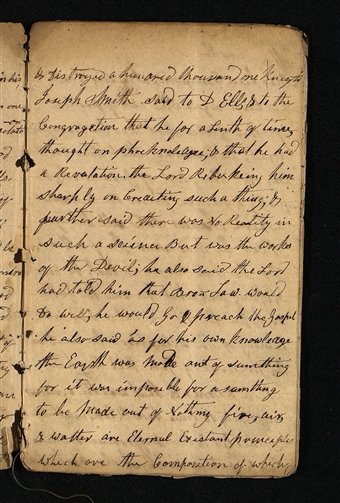 & Distroyed a hundred thousand me
Joseph Smith said to D Ells & to the
Congregation that he for a lenth of time,
thought on phreknoledgee; & that he had
a Revelation. the Lord Rebukeing him
sharply on Creaiting such a thing; &
further said there was No Reality in
such a science But was the works
of the Devil; he also said the Lord
had told him that Bro Law would
Do well, he would go & preach the Gospel
he also said as for his own knowledge
the Earth was made out of sumthing
for it was imposible for a sumthing
to be Made out of Nothing fire, air,
& watter are Eternal Existant principles
which are the Composition of which